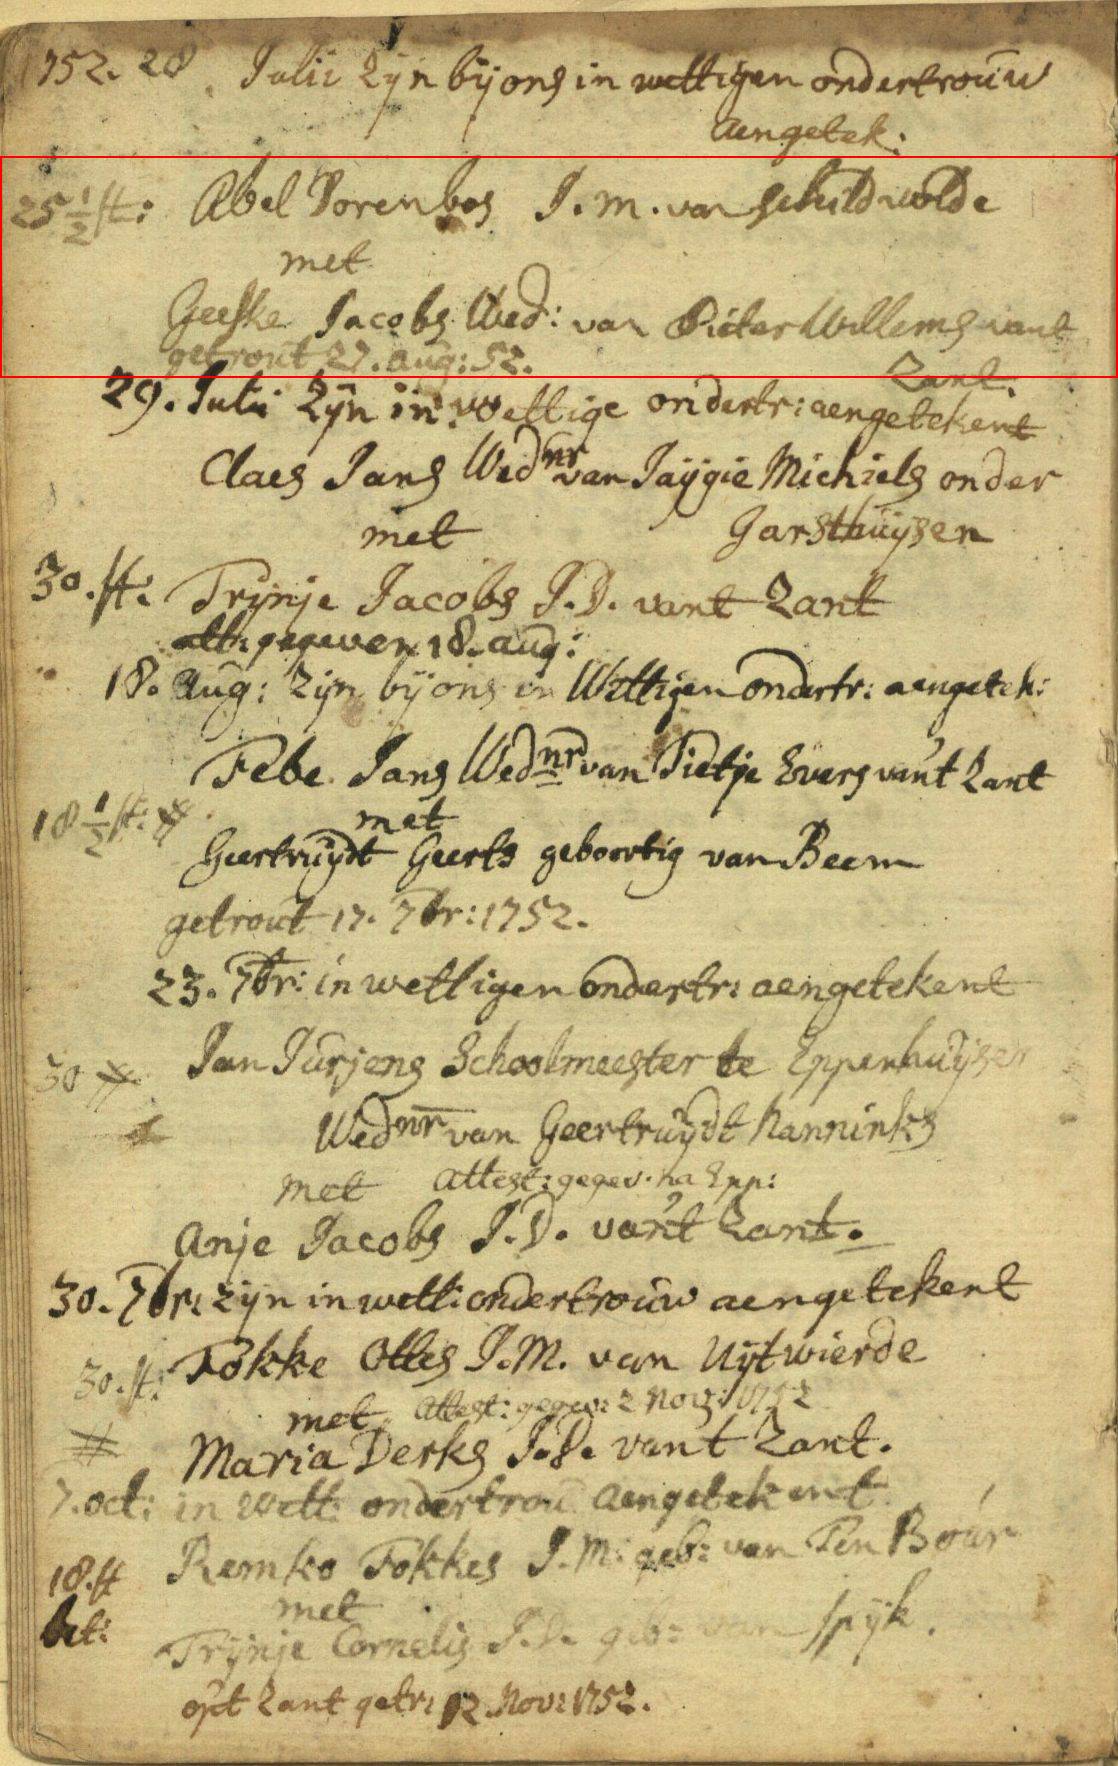 1752. 28 Julii zijn bij ons in wettigen ondertrouw
aengetek:
25 1/2 st: Abel Dorenbos J. m. van schildwolde
met
Geeske Jacobs Wed: van Pieter Willems vant
Zant.
getrout 27. aug: 52.
29. Julii zijn in wettige ondertr: aengetekent
Claes Jans Wednr van Jaÿgie Michiels onder
Garsthuijsen
met
30. st: Trijnje Jacobs J. D. vant Zant
att: gegeven 18. aug:
18. Aug: zijn bij ons in Wettigen ondertr: aengetek:
Febe Jans Wednr van Tietje Evers van't Zant
met
18 1/2 st: # Geertruijdt Geerts geboortig van Beem
getrout 17. 7br: 1752.
23. 7br: in wettigen ondertr: aengetekent
30 # Jan Jurjens Schoolmeester te Eppenhuijsen
Wednr van Geertruijdt Hanninks
met Attest: gegev. na Epp:
Anje Jacobs J. D. van't Zant.
30. 7br: zijn in wett: ondertrouw aengetekent
30. st: Fokke Olles J. M. van Uijtwierde
met Attest: gegev: 2 Nov: 1752
# Maria Derks J. D. vant Zant.
7. oct: in wett: ondertrou aengetekent
18. st Remko Fokkes J. M: geb: van Ten Boúr
met
bet: Trijnje Cornelis J. D. geb: van spijk.
op't Zant getr: 12 Nov: 1752.